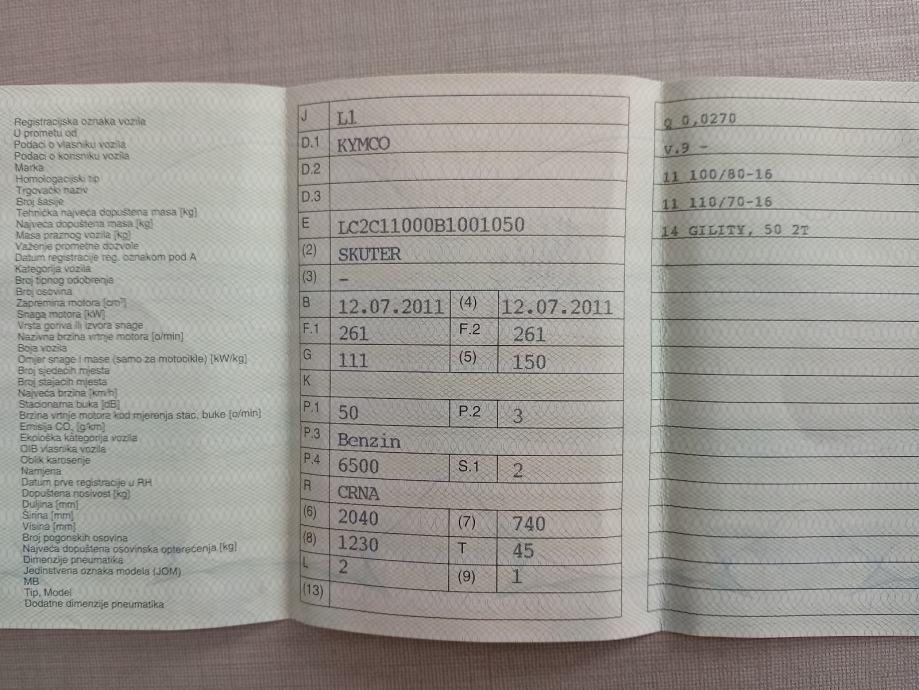 Registracijska oznaka vozila
U prometu od
Podaci o vlasniku vozila
Podaci o korisniku vozila
Marka
Homologacijski tip
Trgovački naziv
Broj šasije
Tehnička najveća dopuštena masa [kg]
Najveća dopuštena masa [kg]
Masa praznog vozila [kg]
Važenje prometne dozvole
Datum registracije reg. oznakom pod A
Kategorija vozila
Broj tipnog odobrenja
Broj osovina
Zapremina motora [cm³]
Snaga motora [kW]
Vrsta goriva ili izvora snage
Nazivna brzina vrtnje motora [o/min]
Boja vozila
Omjer snage i mase (samo za motocikle) [kW/kg]
Broj sjedećih mjesta
Broj stajaćih mjesta
Najveća brzina [km/h]
Stacionarna buka [dB]
Brzina vrtnje motora kod mjerenja stac. buke [o/min]
Emisija CO₂ [g/km]
Ekološka kategorija vozila
OIB vlasnika vozila
Oblik karoserije
Namjena
Datum prve registracije u RH
Dopuštena nosivost [kg]
Duljina [mm]
Širina [mm]
Visina [mm]
Broj pogonskih osovina
Najveća dopuštena osovinska opterećenja [kg]
Dimenzije pneumatika
Jedinstvena oznaka modela (JOM)
MB
Tip, Model
Dodatne dimenzije pneumatika
J L1
D.1 KYMCO
D.2
D.3
E LC2C11000B1001050
(2) SKUTER
(3) –
B 12.07.2011 (4) 12.07.2011
F.1 261 F.2 261
G 111 (5) 150
K
P.1 50 P.2 3
P.3 Benzin
P.4 6500 S.1 2
R CRNA
(6) 2040 (7) 740
(8) 1230 T 45
L 2 (9) 1
(13)
Q 0,0270
V.9 –
11 100/80-16
11 110/70-16
14 GILITY, 50 2T